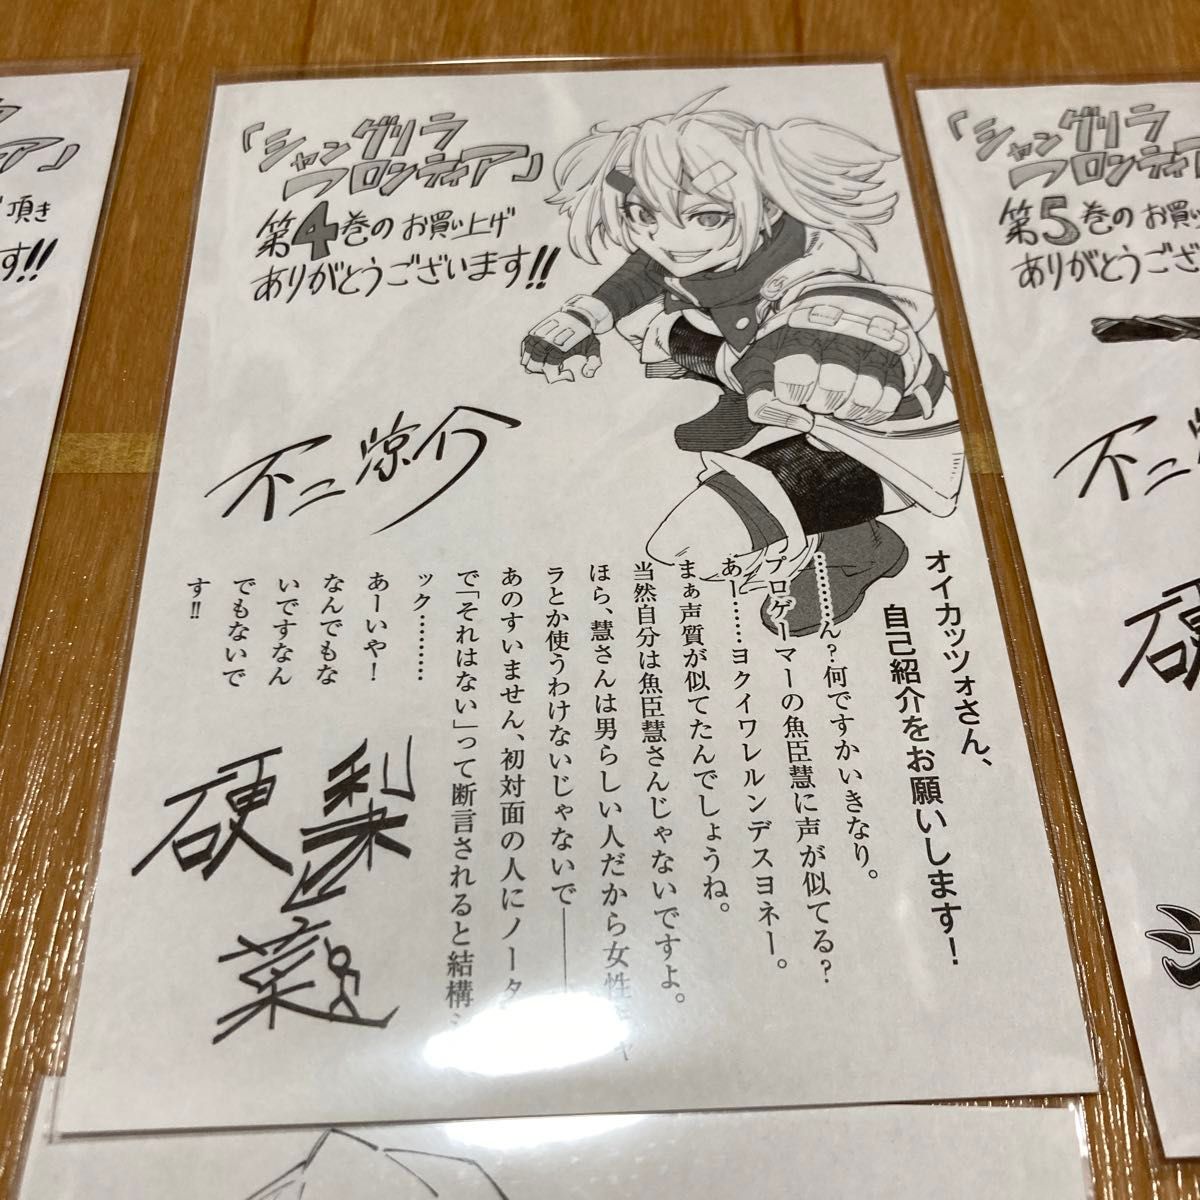 「シャングリラ
フロンティア」
第4巻のお買い上げ
ありがとうございます!!
不二涼介
オイカッツォさん、
自己紹介をお願いします！
…………ん？何ですかいきなり。
プロゲーマーの魚臣慧に声が似てる？
あー……ヨクイワレルンデスヨネー。
まぁ声質が似てたんでしょうね。
当然自分は魚臣慧さんじゃないですよ。
ほら、慧さんは男らしい人だから女性
ラとか使うわけないじゃないで――
あのすいません、初対面の人にノータ
で「それはない」って断言されると結構
ック…………
あーいや！
なんでもな
いですなん
でもないで
す!!
硬梨菜
頂き
す!!
「シャングリラ
フロンティア
第5巻のお買い
ありがとうござ
不二
硬